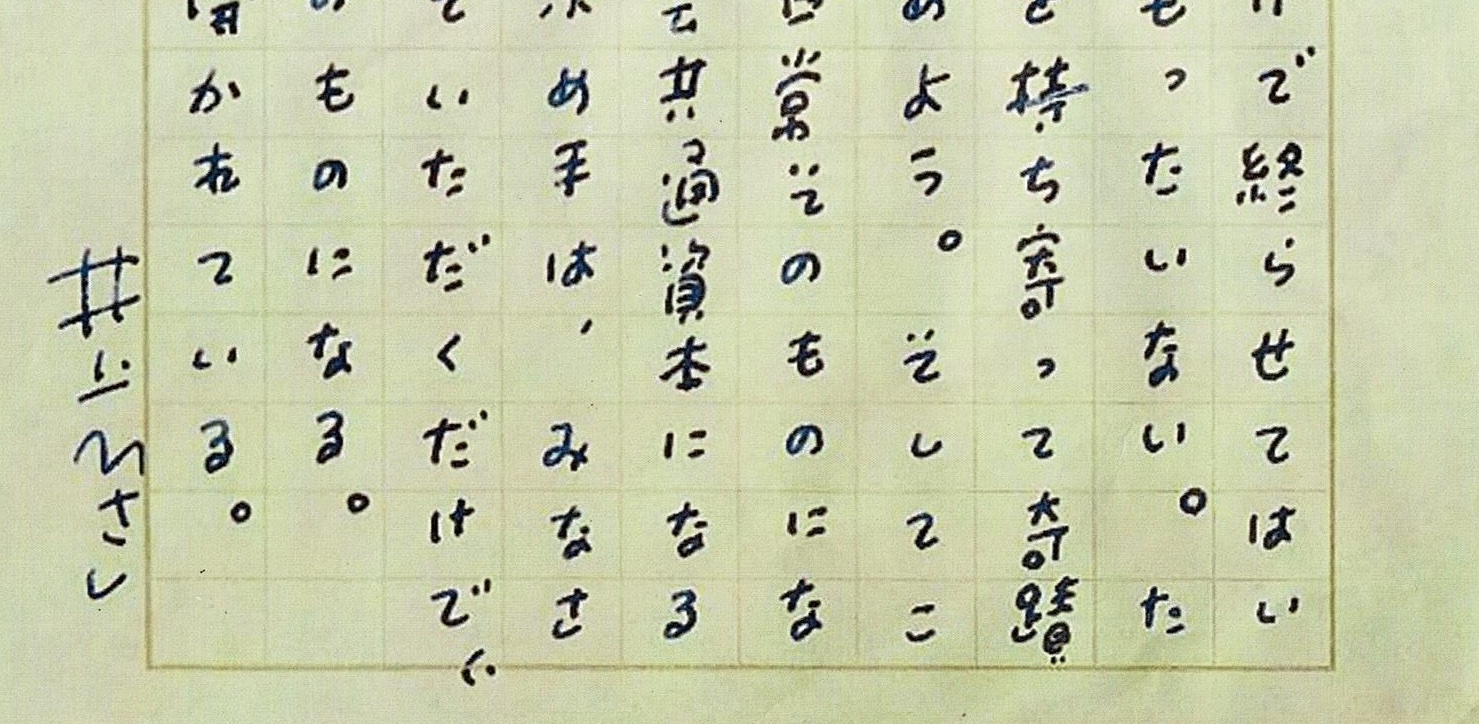 で終らせてはい
もったいない。た
持ち寄って奇蹟
めよう。そしてこ
常そのものにな
会共通資本になる
め手は、みなさ
ていただくだけで
のものになる。
開かれている。
井上ひさし